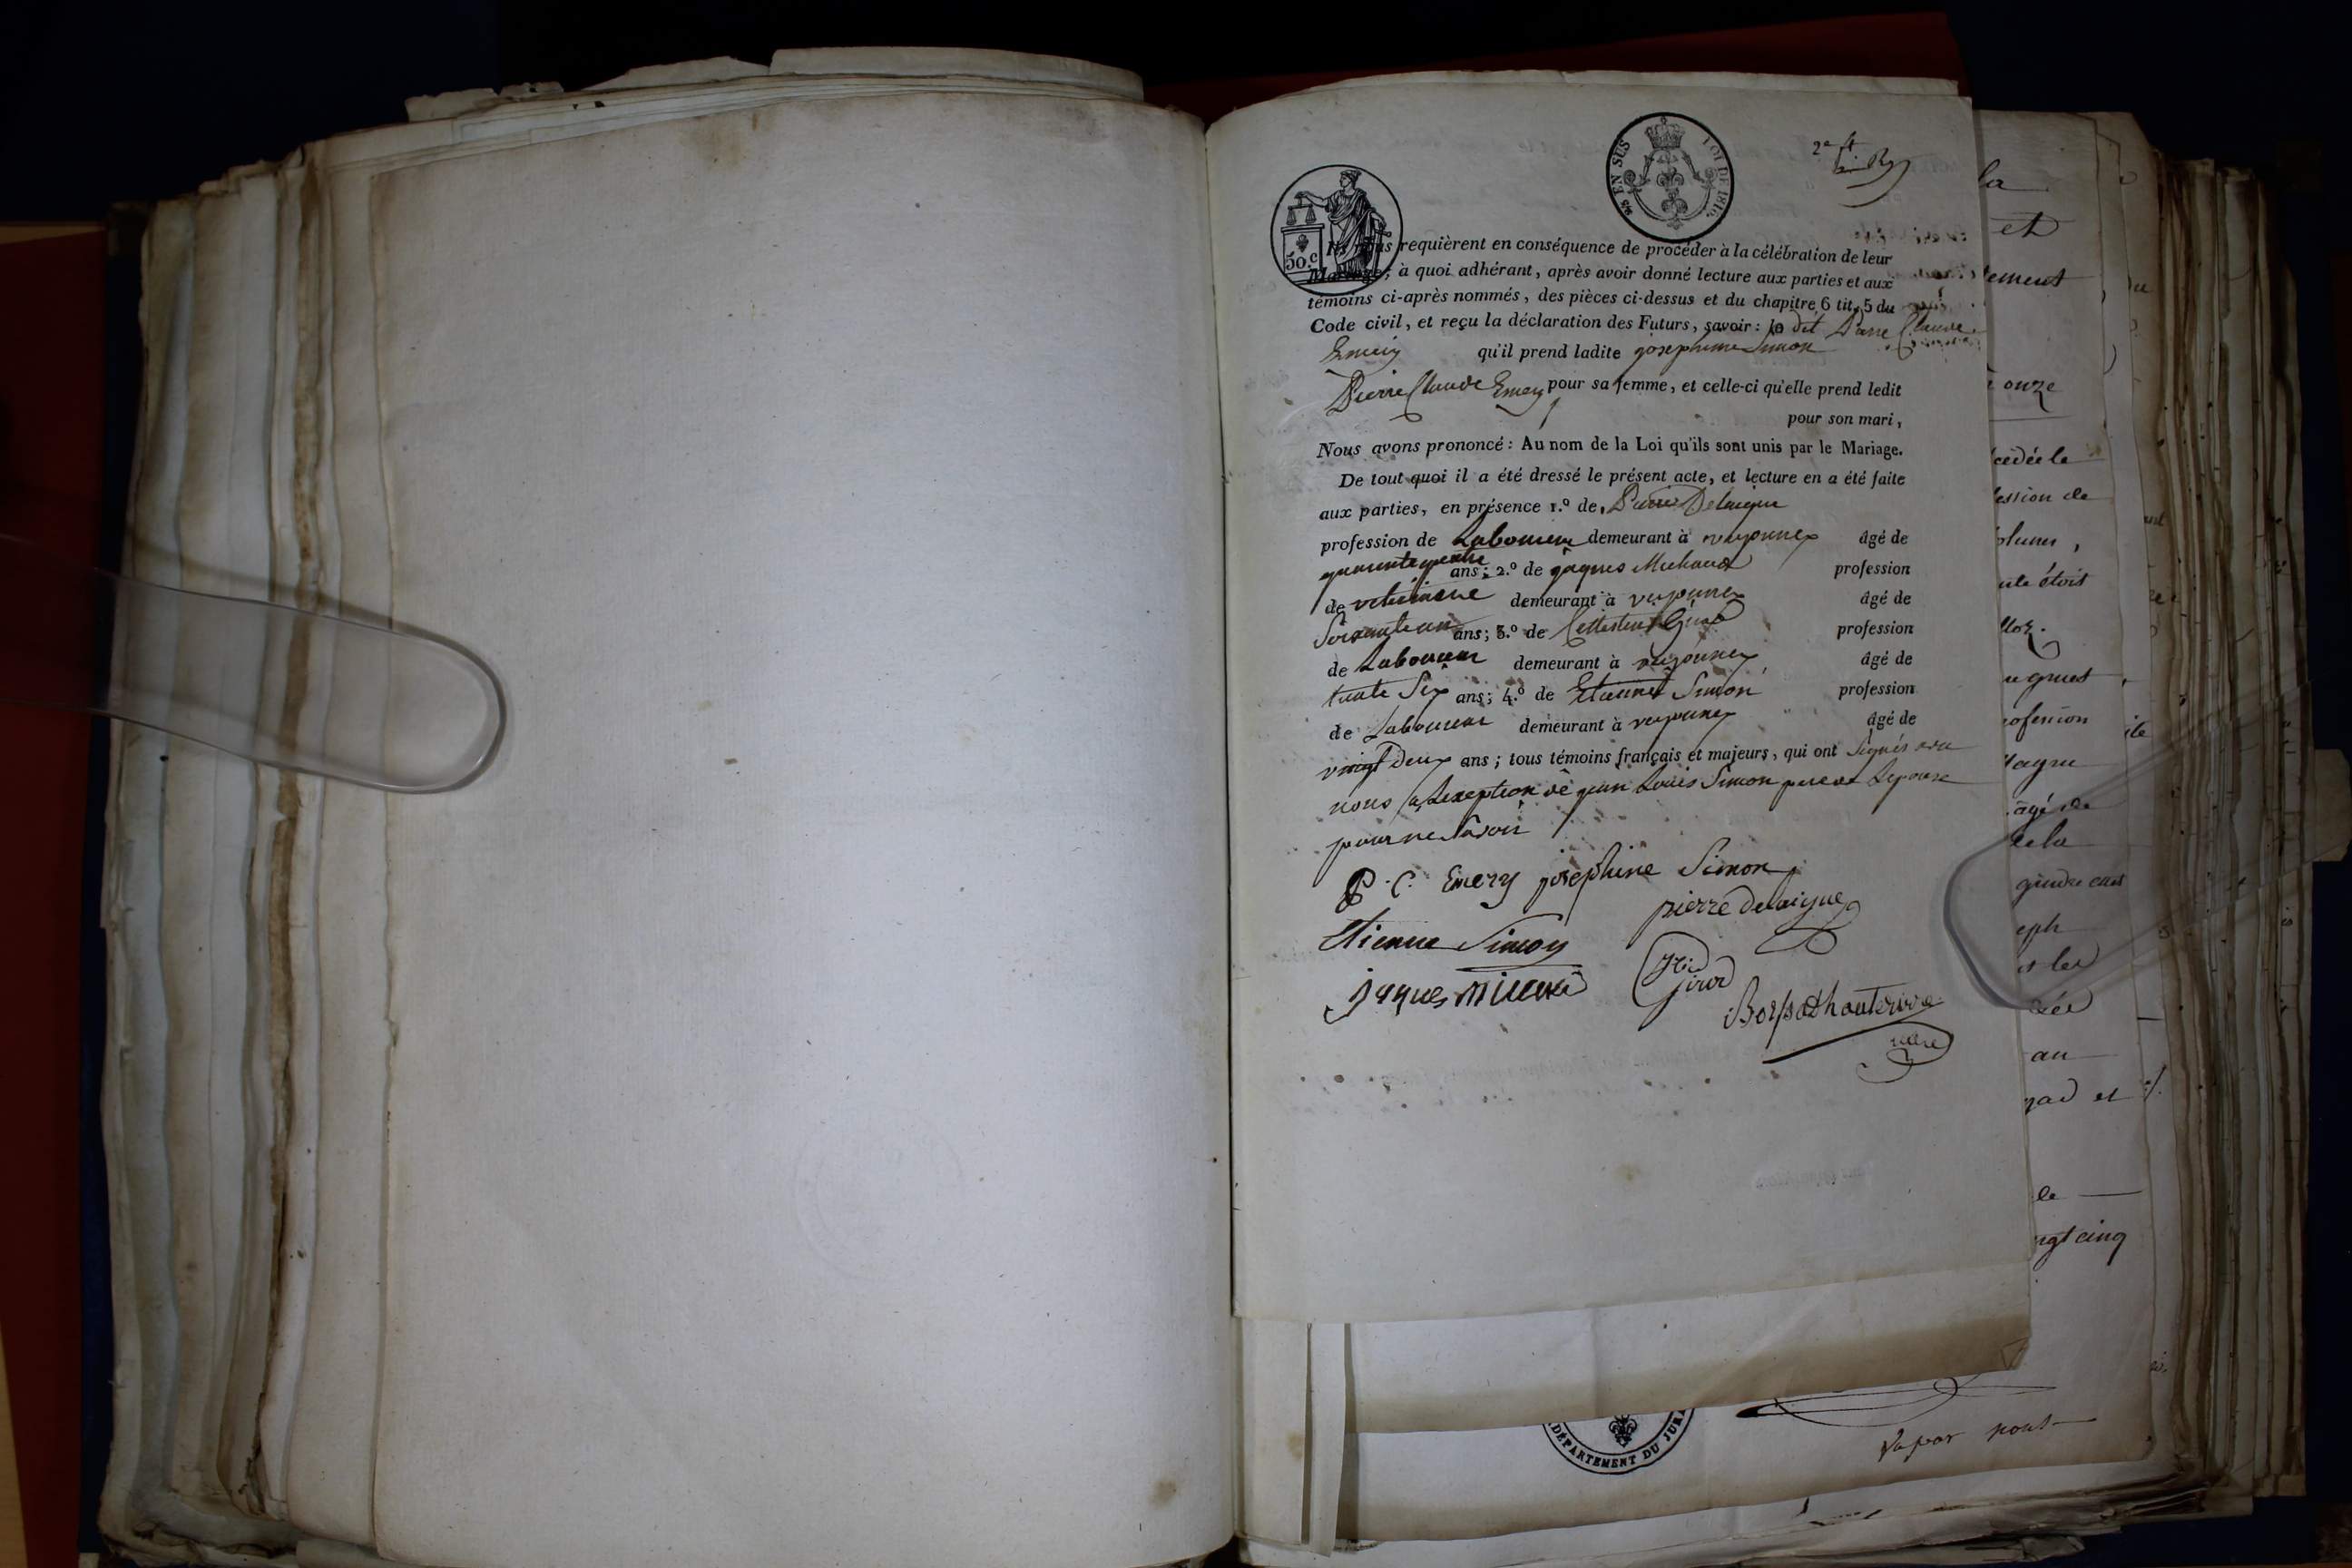 2e ft
¼ EN SUS
LOI DE 1816.
50.c
Ils nous requièrent en conséquence de procéder à la célébration de leur
Mariage; à quoi adhérant, après avoir donné lecture aux parties et aux
témoins ci-après nommés, des pièces ci-dessus et du chapitre 6 tit. 5 du
Code civil, et reçu la déclaration des Futurs, savoir: le dit Pierre Claude
Emery qu'il prend ladite josephine Simon
pour sa femme, et celle-ci qu'elle prend ledit
Pierre Claude Emery pour son mari,
Nous avons prononcé: Au nom de la Loi qu'ils sont unis par le Mariage.
De tout quoi il a été dressé le présent acte, et lecture en a été faite
aux parties, en présence 1.o de Pierre Delaigue
profession de Laboureur demeurant à âgé de
quarante quatre ans; 2.o de jaques Michaud profession
de demeurant à âgé de
Soixante un ans; 3.o de Girod profession
de Laboureur demeurant à âgé de
trente Six ans; 4.o de Etienne Simon profession
de Laboureur demeurant à âgé de
vingt deux ans; tous témoins français et majeurs, qui ont Signés avec
nous a Lexception de jean Louis Simon pere de Lepouse
pour ne Savoir
P. C. Emery josephine Simon
pierre delaigue
Etienne Simon
Girod
jaques michaud
Borsat dhauterive
maire
la
et
tement
onze
cédée le
fession de
ute étoit
rofession
âgé de
de la
eph
et les
au
le
ngt cinq
DÉPARTEMENT DU JURA
Vu par nous